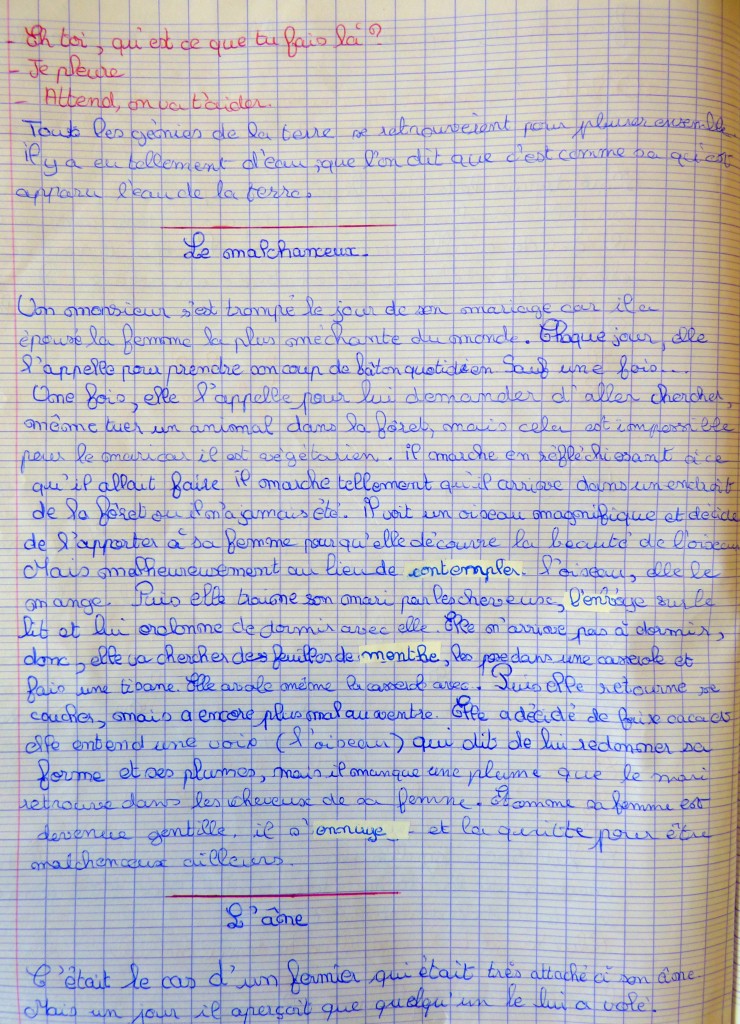 - Eh toi, qu'est ce que tu fais là?
- Je pleure
- Attend, on va t'aider.
Touts les génies de la terre se retrouvaient pour pleurer ensemble
il y a eu tellement d'eau, que l'on dit que c'est comme sa qu'est
apparu l'eau de la terre.
Le malchanceux.
Un monsieur s'est trompé le jour de son mariage car il a
épousé la femme la plus méchante du monde. Chaque jour, elle
l'appelle pour prendre son coup de bâton quotidien sauf une fois...
Une fois, elle l'appelle pour lui demander d'aller chercher,
même tuer un animal dans la fôret, mais cela est impossible
pour le mari car il est végétarien. il marche en réfléchissant à ce
qu'il allait faire il marche tellement qu'il arrive dans un endroit
de la fôret ou il n'a jamais été. Il voit un oiseau magnifique et décide
de l'apporter à sa femme pour qu'elle découvre la beauté de l'oiseau
Mais malheureusement au lieu de contempler l'oiseau, elle le
mange. Puis elle traine son mari par les cheveux, l'envoye sur le
lit et lui ordonne de dormir avec elle. Elle n'arrive pas à dormir,
donc, elle va chercher des feuilles de menthe, les pose dans une casserole et
fais une tisane. Elle avale même la casserole avec. Puis elle retourne se
coucher, mais a encore plus mal au ventre. Elle a décidé de faire caca
elle entend une voix (l'oiseau) qui dit de lui redonner sa
forme et ses plumes, mais il manque une plume que le mari
retrouve dans les cheveux de sa femme. Comme sa femme est
devenue gentille, il s'ennuye et la quitte pour être
malchenceux ailleurs.
L'âne
C'était le cas d'un fermier qui était très attaché à son âne
Mais un jour il aperçoit que quelqu'un le lui a volé.